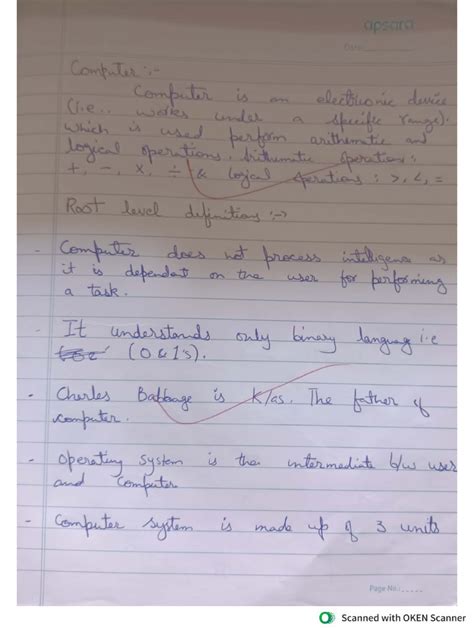 apsara
Date:
Computer :-
Computer is an electronic device
(i.e.. works under a specific range).
which is used perform arithematic and
logical operations. Arithematic operations :
+, -, ×, ÷ & logical operations : >, <, =
Root level definitions :->
- Computer does not process intelligence as
it is dependat on the user for performing
a task.
- It understands only binary languag i.e
(0 & 1's).
- Charles Babbage is K/as. The father of
computer.
- Operating system is the intermediate b/w user
and Computer
- Computer system is made up of 3 units
Page No.:
Scanned with OKEN Scanner